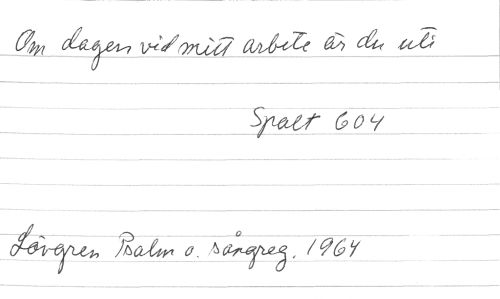 Om dagen vid mitt arbete är du uti
Spalt 604
Lövgren Psalm o. sångreg. 1964